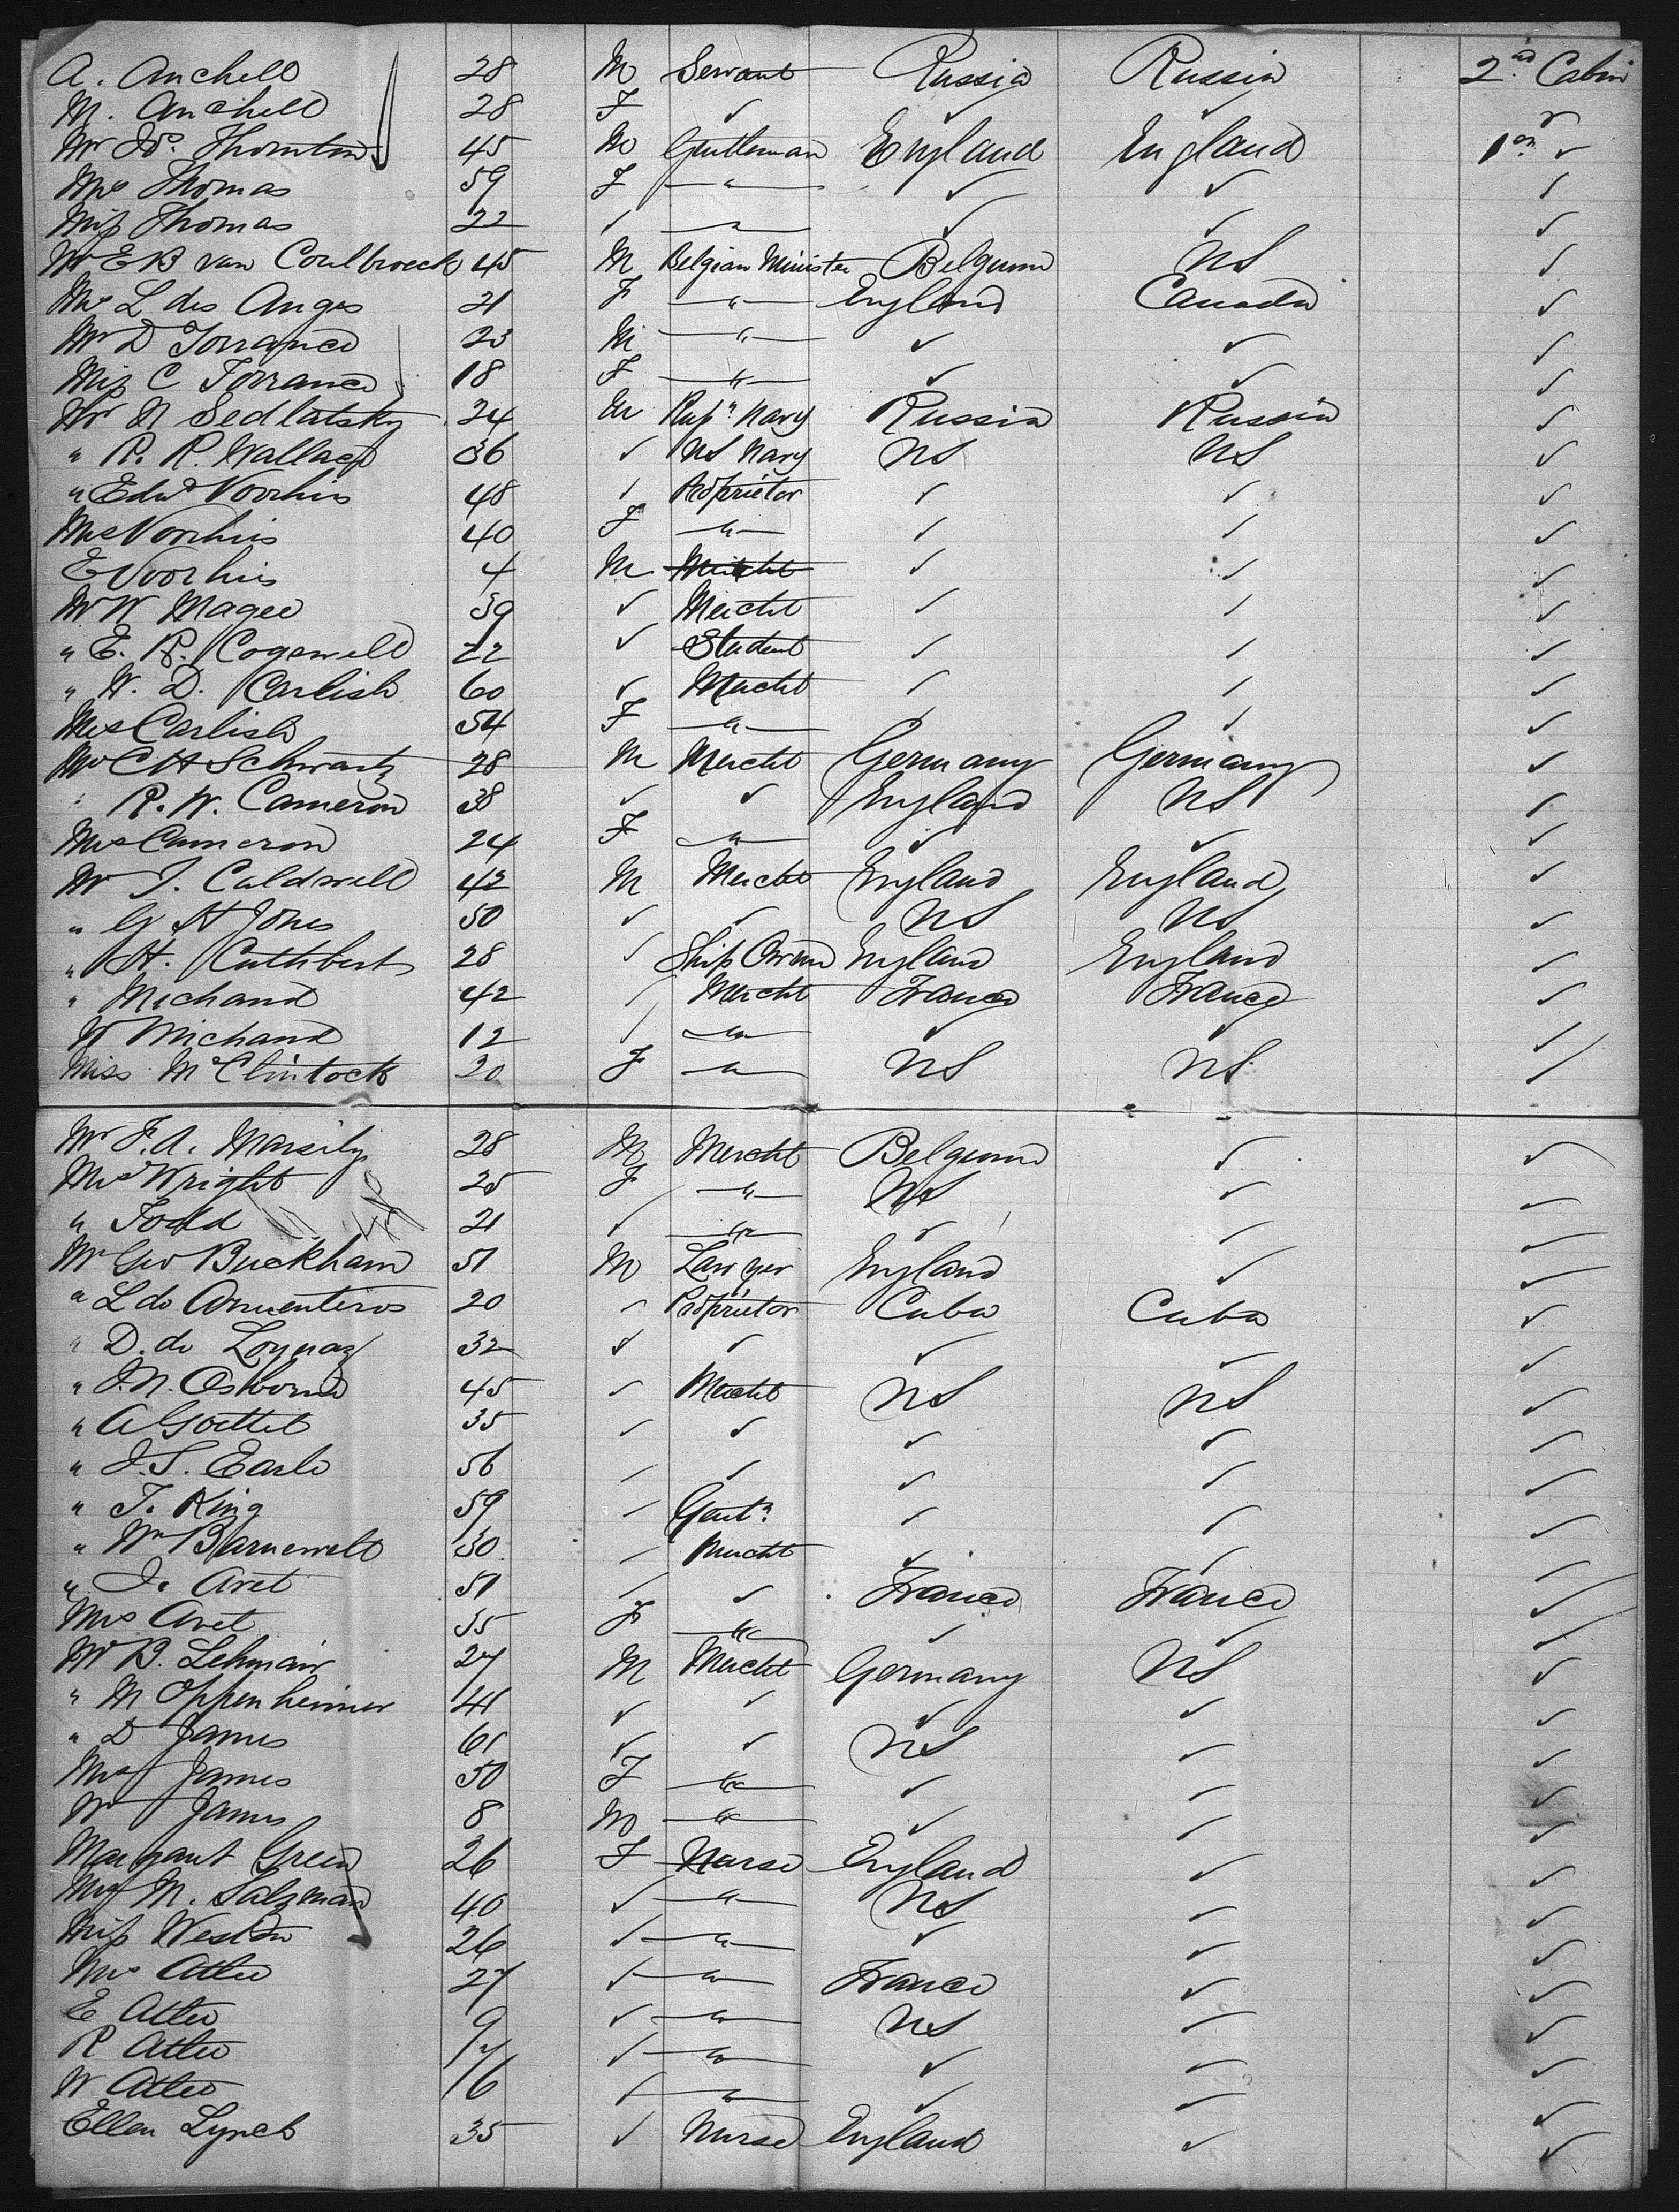 A. Anchell 28 M Servant Russia Russia 2nd Cabin
M. Anchell 28 F ✓ ✓ ✓ ✓
Mr Jos. Thornton 45 M Gentleman England England 1st ✓
Mrs Thomas 59 F — " — ✓ ✓ ✓
Miss Thomas 22 ✓ — " — ✓ ✓ ✓
Mr E B van Coulbroeck 45 M Belgian Minister Belgium US ✓
Mrs L des Anges 21 F — " — England Canada ✓
Mr D Torrance 23 M — " — ✓ ✓ ✓
Miss C Torrance 18 F — " — ✓ ✓ ✓
Mr N Sedlatsky 24 M Rusn. Navy Russia Russia ✓
" R. R. Wallace 36 ✓ US Navy US US ✓
" Edwd Voorhis 48 ✓ Proprietor ✓ ✓ ✓
Mrs Voorhis 40 F — " — ✓ ✓ ✓
E Voorhis 4 M Mercht ✓ ✓ ✓
Mr W Magee 39 ✓ Mercht ✓ ✓ ✓
" E. R. Cogswell 22 ✓ Student ✓ ✓ ✓
" W. D. Carlish 60 ✓ Mercht ✓ ✓ ✓
Mrs Carlish 54 F — " — ✓ ✓ ✓
Mr C H Schwartz 28 M Mercht Germany Germany ✓
" R. W. Cameron 38 ✓ ✓ England US ✓
Mrs Cameron 24 F — " — ✓ ✓ ✓
Mr J. Caldwell 42 M Mercht England England ✓
" G H Jones 50 ✓ ✓ US US ✓
" H. Cuthbert 28 ✓ Ship Owner England England ✓
" Michand 42 ✓ Mercht France France ✓
W Michand 12 ✓ — " — ✓ ✓ ✓
Miss McClintock 20 F — " — US US ✓
Mr F. A. Marsily 28 M Mercht Belgium ✓ ✓
Mrs Wright 25 F — " — US ✓ ✓
" Todd 21 ✓ — " — ✓ ✓ ✓
Mr Geo Buckham 51 M Lawyer England ✓ ✓
" L de Armenteros 20 ✓ Proprietor Cuba Cuba ✓
" D. de Loynaz 32 ✓ ✓ ✓ ✓ ✓
" J. N. Osborne 45 ✓ Mercht US US ✓
" A Goettel 35 ✓ ✓ ✓ ✓ ✓
" J. S. Earle 56 ✓ ✓ ✓ ✓ ✓
" T. King 59 ✓ Gentn ✓ ✓ ✓
" Wm Barnewelt 30 ✓ Mercht ✓ ✓ ✓
" J. Avet 51 ✓ ✓ France France ✓
Mrs Avet 35 F — " — ✓ ✓ ✓
Mr B. Lehmair 27 M Mercht Germany US ✓
" M Oppenheimer 41 ✓ ✓ ✓ ✓ ✓
" D James 61 ✓ ✓ US ✓ ✓
Mrs James 50 F — " — ✓ ✓ ✓
W James 8 M — " — ✓ ✓ ✓
Margaret Green 26 F Nurse England ✓ ✓
Mrs M. Salzman 40 ✓ — " — US ✓ ✓
Miss Weston 26 ✓ — " — ✓ ✓ ✓
Mrs Atlee 27 ✓ — " — France ✓ ✓
E Atlee 9 ✓ — " — US ✓ ✓
R Atlee ✓ — " — ✓ ✓ ✓
W Atlee ✓ — " — ✓ ✓ ✓
Ellen Lynch 35 ✓ Nurse England ✓ ✓